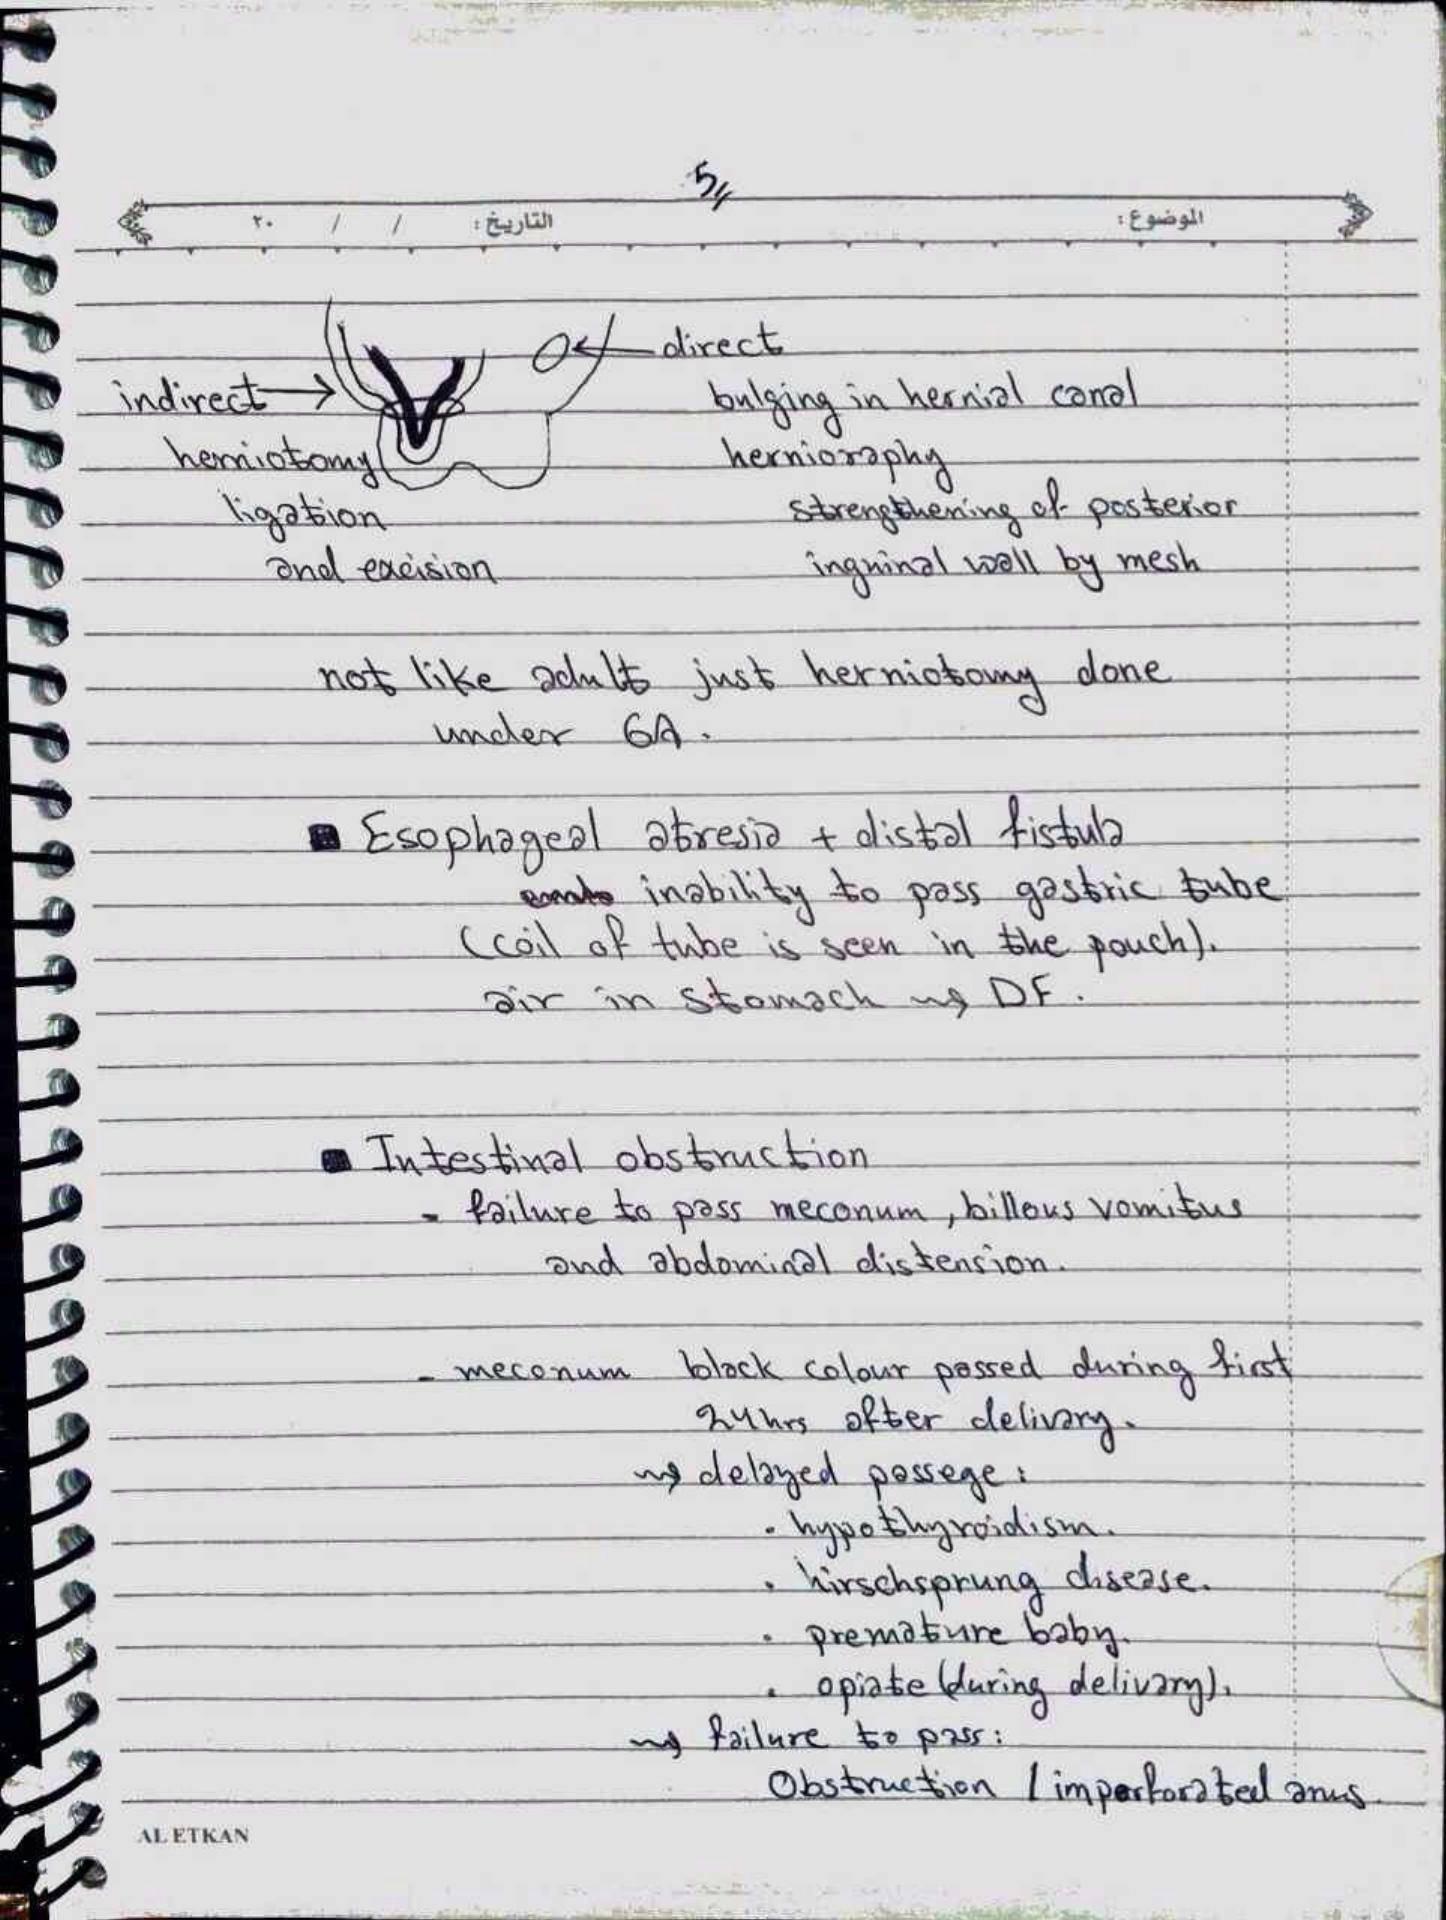 5
الموضوع:
التاريخ: / / ٢٠
direct
indirect
bulging in hernial canal
herniotomy
hernioraphy
ligation
strengthening of posterior
and excision
inguinal wall by mesh
not like adult just herniotomy done
under GA.
Esophageal atresia + distal fistula
inability to pass gastric tube
(coil of tube is seen in the pouch).
air in stomach → DF.
Intestinal obstruction
- failure to pass meconum, billous vomitus
and abdominal distension.
- meconum black colour passed during first
24hrs after delivary.
→ delayed passege:
• hypothyroidism.
• hirschsprung disease.
• premature baby.
• opiate (during delivary).
→ failure to pass:
Obstruction / imperforated anus
AL ETKAN